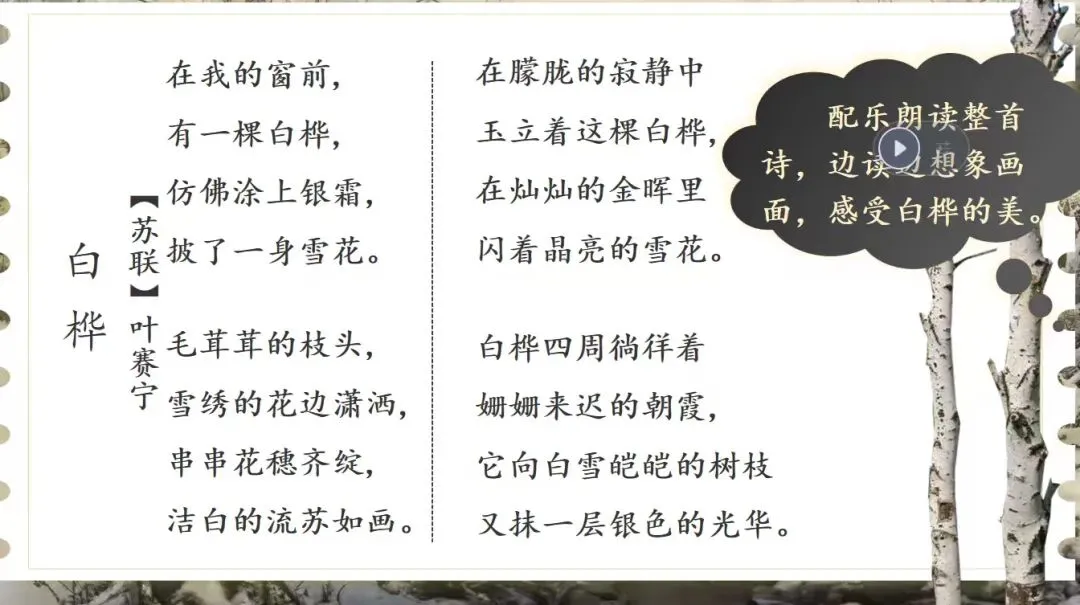 白桦
【苏联】叶赛宁
在我的窗前，
有一棵白桦，
仿佛涂上银霜，
披了一身雪花。
毛茸茸的枝头，
雪绣的花边潇洒，
串串花穗齐绽，
洁白的流苏如画。
在朦胧的寂静中
玉立着这棵白桦，
在灿灿的金晖里
闪着晶亮的雪花。
白桦四周徜徉着
姗姗来迟的朝霞，
它向白雪皑皑的树枝
又抹一层银色的光华。
配乐朗读整首
诗，边读边想象画
面，感受白桦的美。